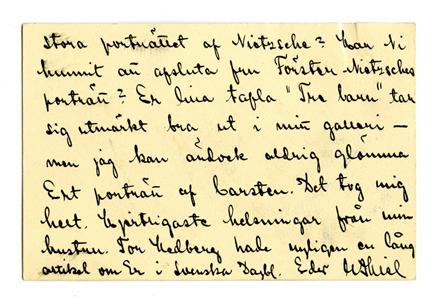 stora porträttet af Nietzsche? Har Ni
hunnit än afsluta fru Förster-Nietzsches
porträtt? Er lilla tafla "Tre barn" tar
sig utmärkt bra ut i min galleri –
men jag kan ändock aldrig glömma
Ert porträtt af Carsten. Det tog mig
helt. Hjertligaste helsningar från min
hustru. Tor Hedberg hade nyligen en lång
artikel om Er i Svenska Dagbl. Eder EThiel